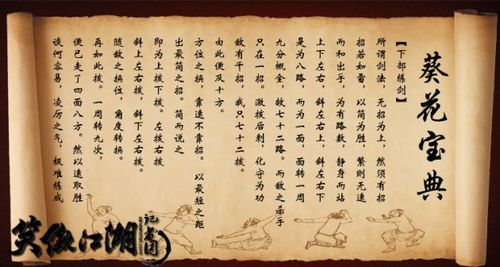 葵花宝典
【下部练剑】
所谓剑法，无招为上，然须有招
招若如雷，以简为胜，繁则无速
而和出乎，为有路数，静身而站
上下左右，斜左右上，斜左右下
是为八路，而为一面，面转一周
九分概全，故七十二路。而敌之杀乎
只在一招。激拔后刺，化守为功
敌有千招，我只七十二拔。
由此便及十方。
方位之换，靠速不靠招。以最短之距
出最简之招。简而说之
即为上拔下拔。左拔右拔
斜上左右拔，斜下左右拔。
随敌之换位，角度转换。
再如此拔。一周转九次，
便已走了四面八方。然以速取胜
谈何容易，凌厉之气，极难练成
笑傲江湖
记者团